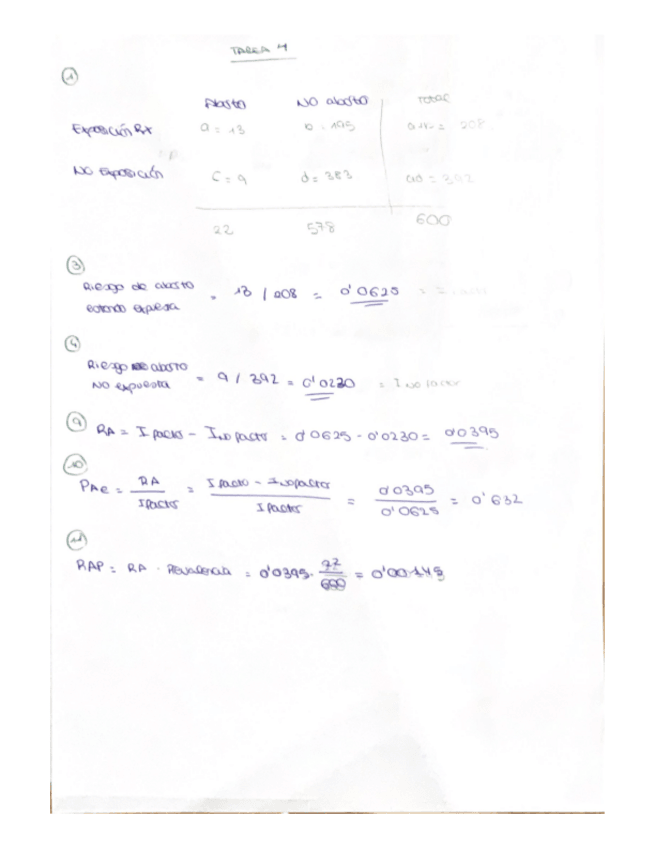 TAREA 4
①
Aborto NO aborto TOTAL
Exposición RX a = 13 b = 195 a+b = 208
NO Exposición c = 9 d = 383 c+d = 392
22 578 600
③
Riesgo de aborto
estando expuesta = 13 / 208 = 0'0625 = I factor
④
Riesgo de aborto
NO expuesta = 9 / 392 = 0'0230 = I no factor
⑨ RA = I factor - I no factor = 0'0625 - 0'0230 = 0'0395
⑩
PAe = RA / I factor = I factor - I no factor / I factor = 0'0395 / 0'0625 = 0'632
⑪
RAP = RA · Prevalencia = 0'0395 · 22 / 600 = 0'00145